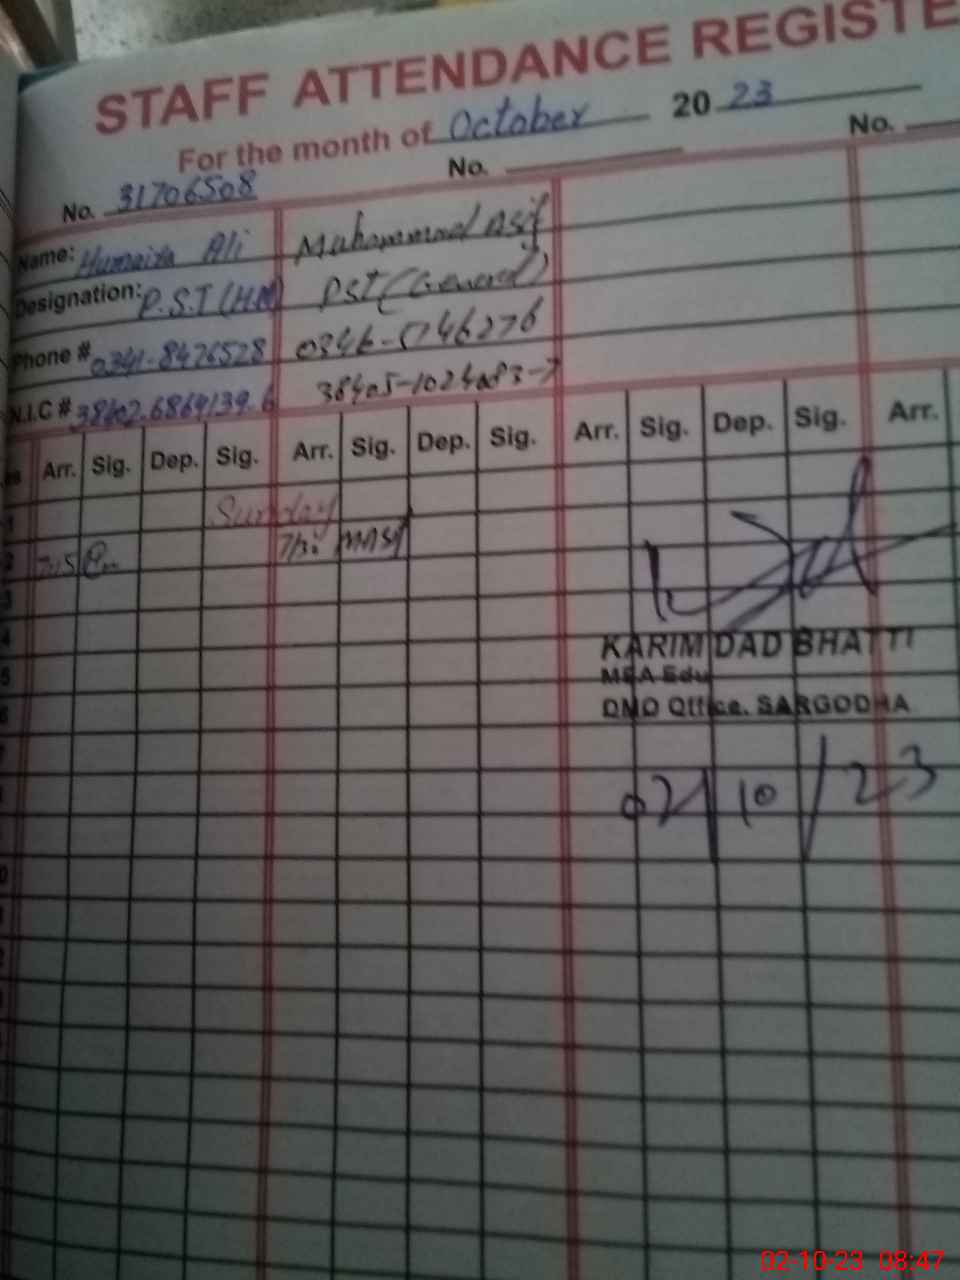 STAFF ATTENDANCE REGISTE
For the month of October 20 23
No. 31706508 No. No.
Name: Humaira Ali Muhammad Asif
Designation: P.S.T (HM) PST (General)
Phone # 0341-8476528 0346-5746276
N.I.C # 38402.6869139.6 38405-1024083-7
Arr. Sig. Dep. Sig. Arr. Sig. Dep. Sig. Arr. Sig. Dep. Sig. Arr.
1 Sunday
2 7:15 7:30 MAsif
3
4
5
6
KARIM DAD BHATTI
MEA Edu
DMO Office. SARGODHA
02/10/23
02-10-23 08:47